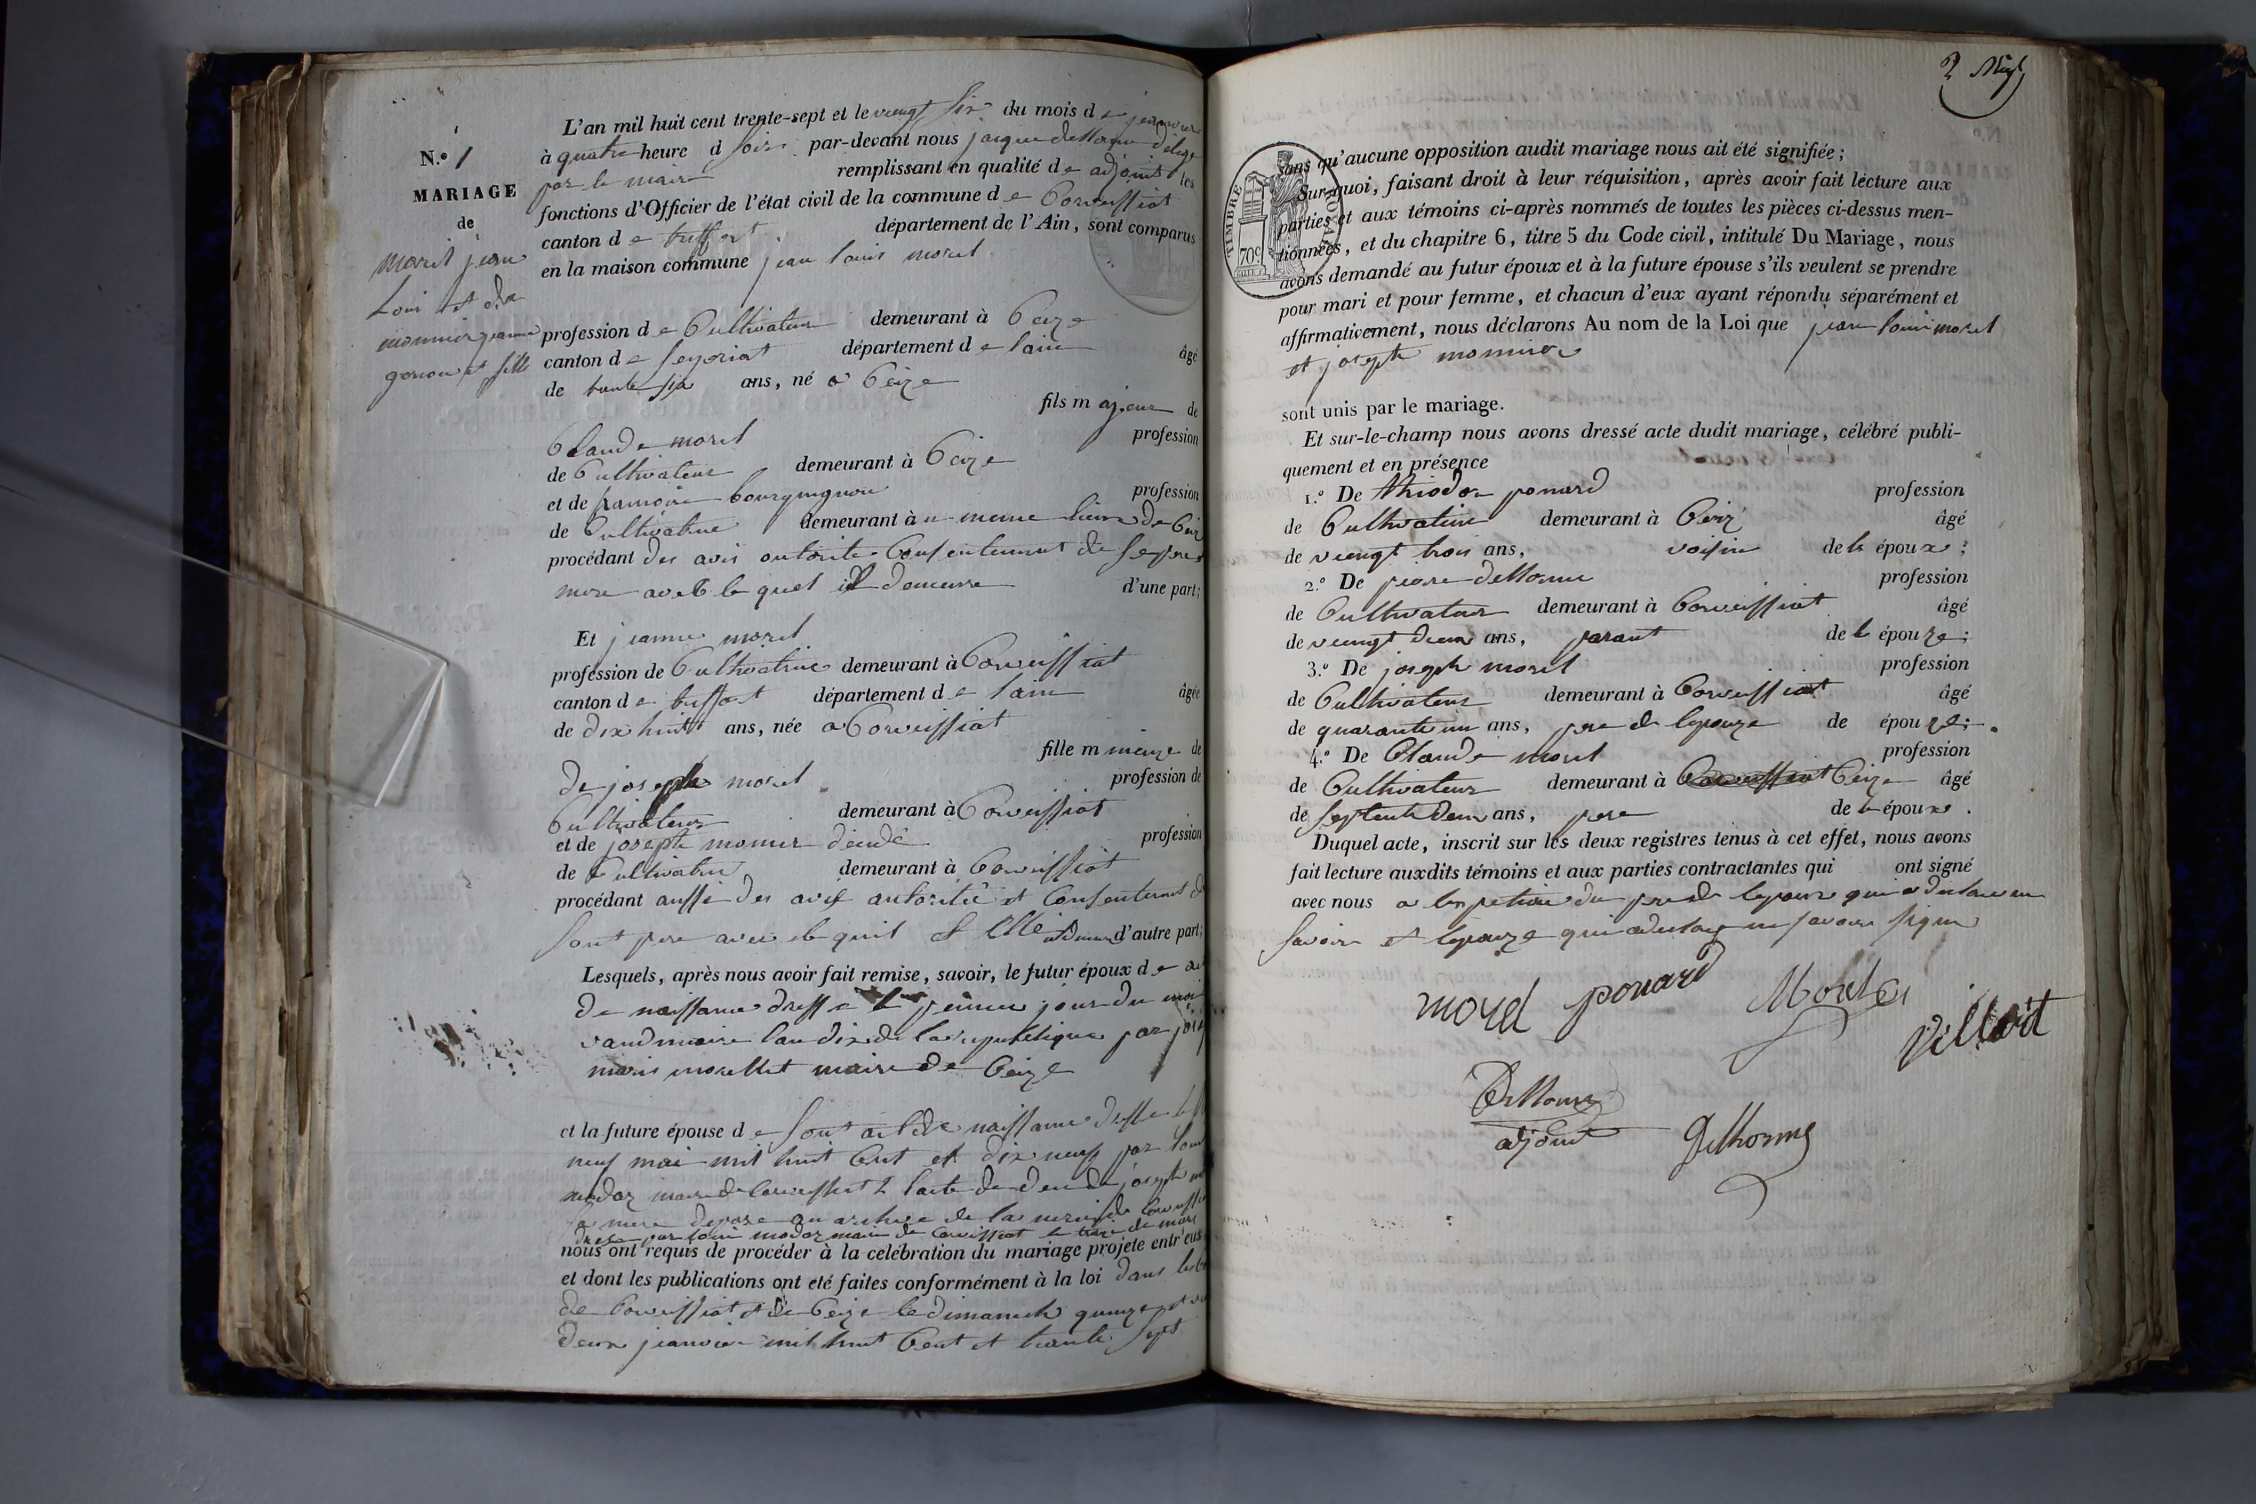 N.º 1
MARIAGE
de
morel jean
Loui et de
monnier jeanne
garcon et fille
L'an mil huit cent trente-sept et le vengt six du mois de jeanvier
à quatre heure d soir par-devant nous jacque dellorme délégé
par le maire remplissant en qualité de adjoint les
fonctions d'Officier de l'état civil de la commune de Corveissiat
canton de treffort département de l'Ain, sont comparus
en la maison commune jean louis morel
profession de Cultivateur demeurant à Ceize
canton de Seyzeriat département de lain âgé
de trente six ans, né a Ceize
fils majeur de
Claude morel profession
de Cultivateur demeurant à Ceize
et de francoise bourguignon profession
de Cultivatrice demeurant à u meme lieux de Ceiz
procédant des avis autorite Consentement de Se pere
mere avec le quel il demeure d'une part;
Et jeanne morel
profession de Cultivatrice demeurant à Corveissiat
canton de treffort département de lain âgée
de dix huitt ans, née a Corveissiat
fille mineuze de
de joseph morel profession de
Cultivateur demeurant à Corveissiat
et de josephe monier décédé profession
de Cultivatrice demeurant à Corveissiat
procédant aussi des avis autorité et Consentement de
Sont pere avec le quel Elle demeure d'autre part;
Lesquels, après nous avoir fait remise, savoir, le futur époux de
de naissance dressé le jour du moi
vandmiaire lan dix de la republique par
marie morellet maire de Ceize
et la future épouse de Sont acte de naissance dresse le
neuf mai mil huit Cent et dix neuf par
modaz maire de Corveissiat et lacte de décé de joseph
Sa mere depose au archive de la merie de Corveissiat
dresse par loui modaz maire de Corveissiat le treize de mars
nous ont requis de procéder à la celébration du mariage projeté entr'eux
et dont les publications ont eté faites conformément à la loi dans les
de Corveissiat et de Ceize le dimanche quinze et
deux jeanvier mil huit Cent et trante Sept
2
sans qu'aucune opposition audit mariage nous ait été signifiée;
Sur quoi, faisant droit à leur réquisition, après avoir fait lecture aux
parties et aux témoins ci-après nommés de toutes les pièces ci-dessus men-
tionnées, et du chapitre 6, titre 5 du Code civil, intitulé Du Mariage, nous
avons demandé au futur époux et à la future épouse s'ils veulent se prendre
pour mari et pour femme, et chacun d'eux ayant répondu séparément et
affirmativement, nous déclarons Au nom de la Loi que jean loui morel
et joseph monnier
sont unis par le mariage.
Et sur-le-champ nous avons dressé acte dudit mariage, célébré publi-
quement et en présence
1.º De thiodore ponard profession
de Cultivateur demeurant à Ceiz âgé
de vengt trois ans, voisin de le époux;
2.º De piere dellorme profession
de Cultivateur demeurant à Corveissiat âgé
de vengt deux ans, parant de l épouze;
3.º De joseph morel profession
de Cultivateur demeurant à Corveissiat âgé
de quarante un ans, pere de lepouze de épouze;
4.º De Claude morel profession
de Cultivateur demeurant à Corveissiat Ceize âgé
de Septente deux ans, pere de le époux.
Duquel acte, inscrit sur les deux registres tenus à cet effet, nous avons
fait lecture auxdits témoins et aux parties contractantes qui ont signé
avec nous a lexpetion du pere de lepoux qui a declare ne
Savoir et lepouze qui a declare ne savoir signer
morel ponard Morel
Villard
Dellorme
adjoint
Delhorme
TIMBRE ROYAL
70c